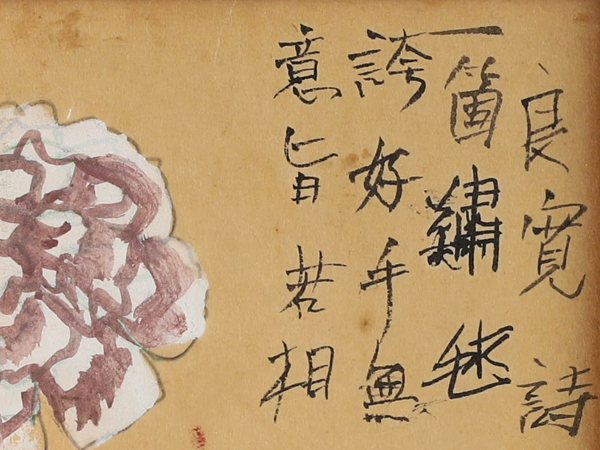 良寛詩
一箇繡毬
誇好手無
意旨若相